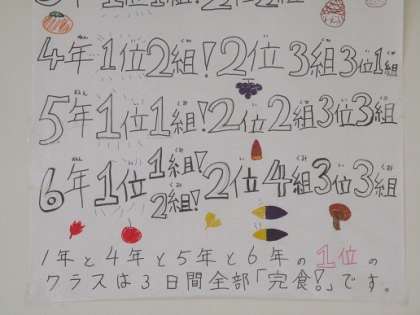 4年1位2組!2位3組3位1組
5年1位1組!2位2組3位3組
6年1位1組!2組!2位4組3位3組
1年と4年と5年と6年の1位の
クラスは3日間全部「完食!」です。